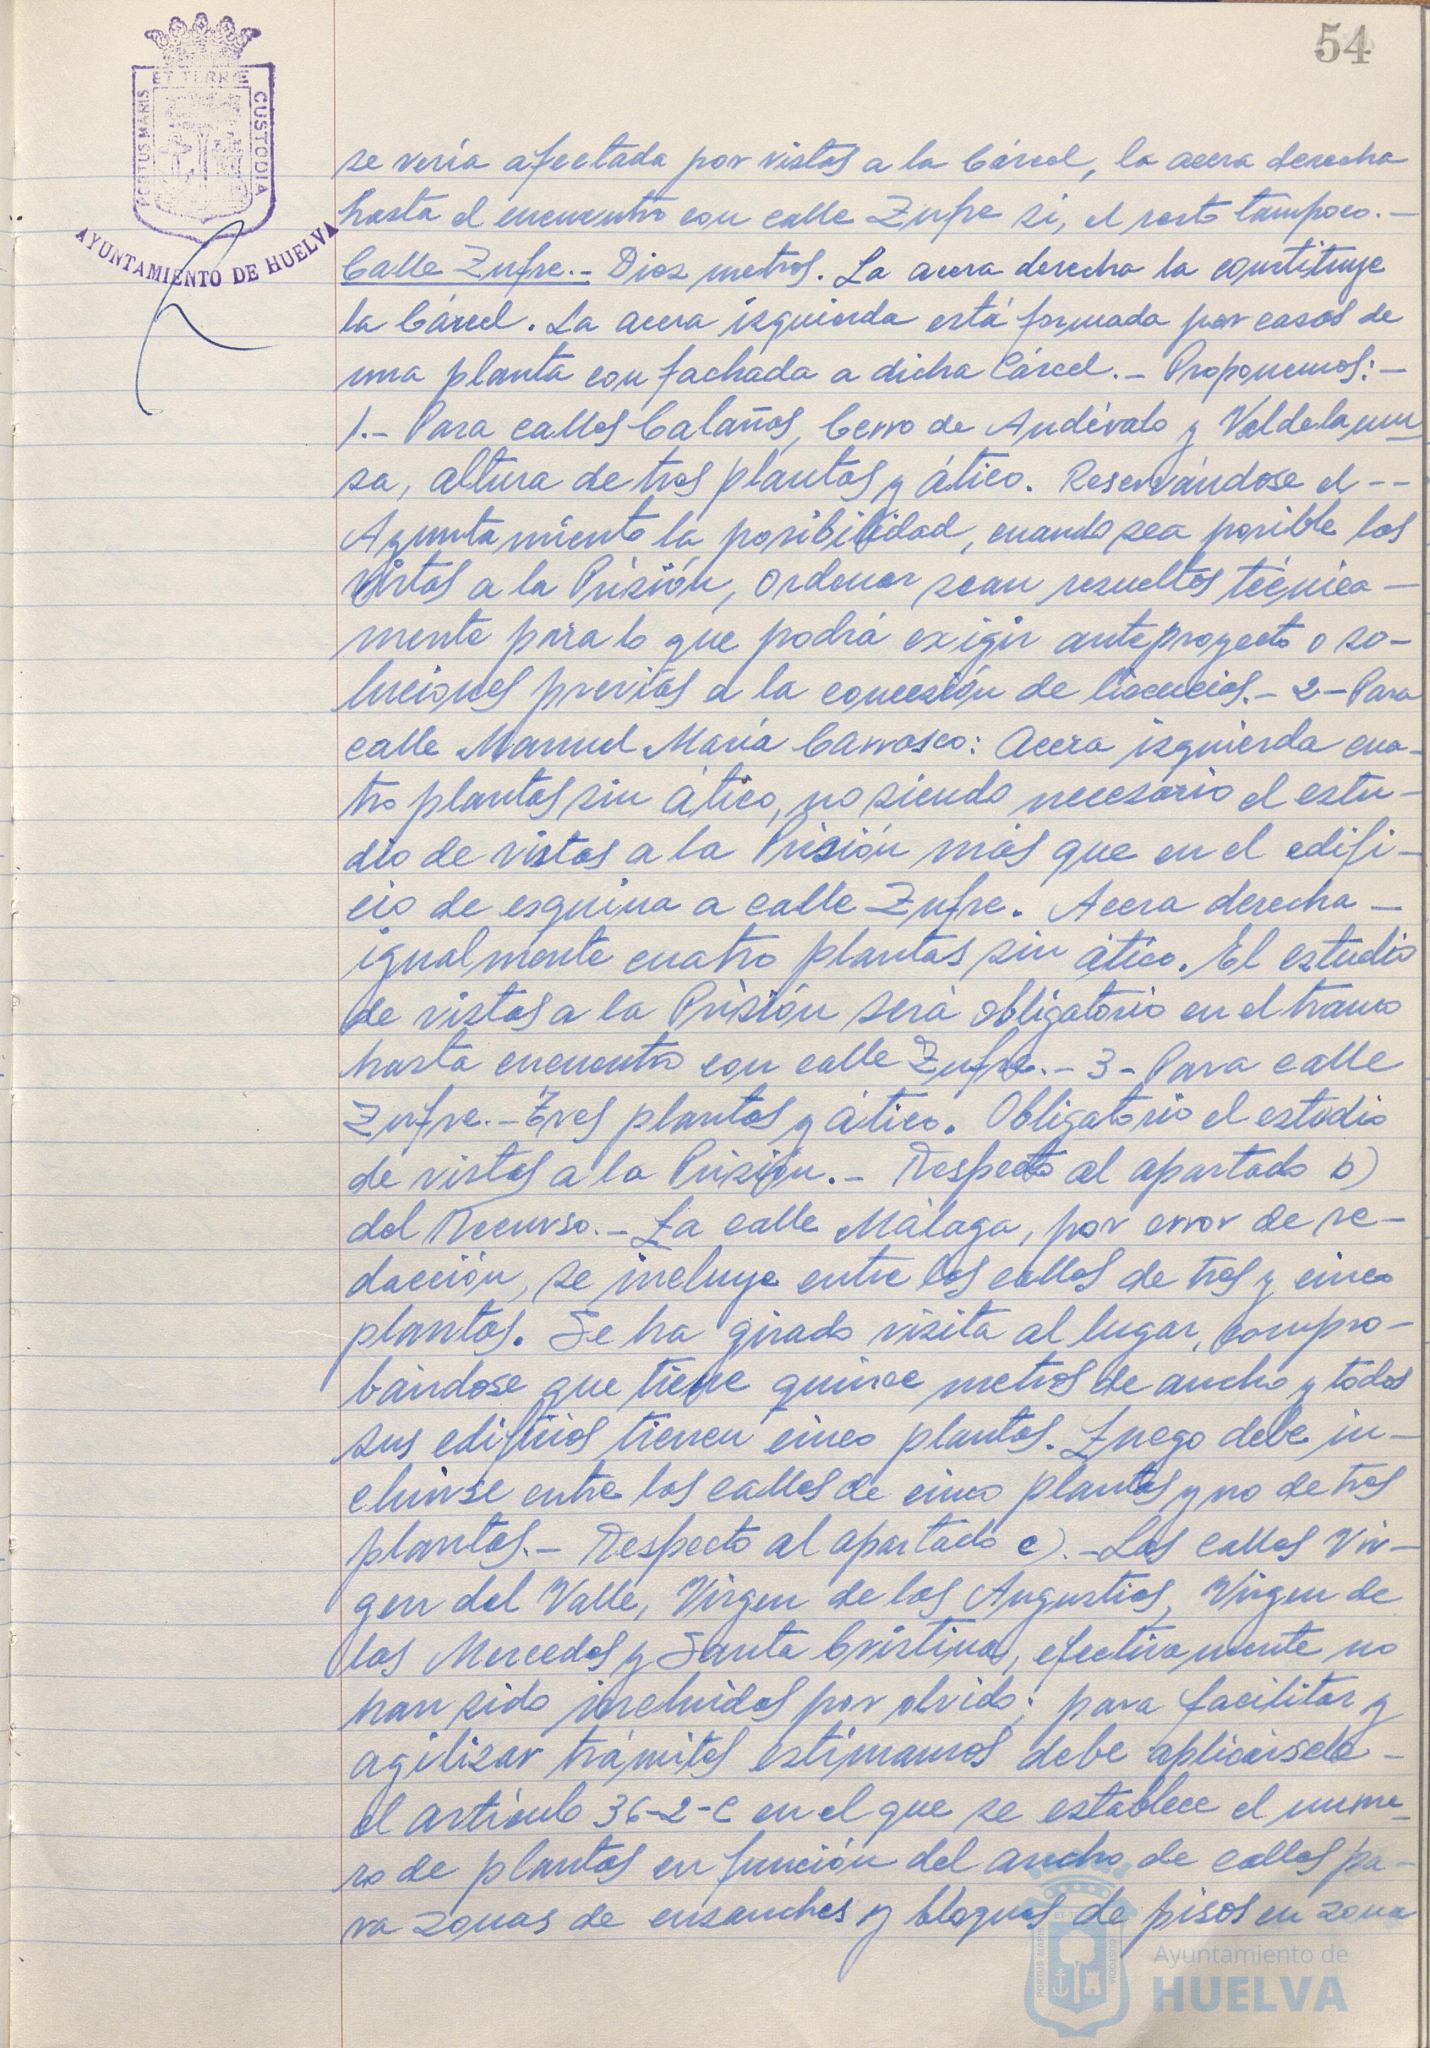 54
PORTUS MARIS ET TERRÆ CUSTODIA
AYUNTAMIENTO DE HUELVA
se vería afectada por vistas a la Cárcel, la acera derecha
hasta el encuentro con calle Zufre si, el resto tampoco.-
Calle Zufre.- Diez metros. La acera derecha la constituye
la Cárcel. La acera izquierda está formada por casas de
una planta con fachada a dicha Cárcel.- Proponemos:-
1.- Para calles Calañas, Cerro de Andévalo y Valdelamu-
sa, altura de tres plantas y ático. Reservándose el --
Ayuntamiento la posibilidad, cuando sea posible las
vistas a la Prisión, ordenar sean resueltas técnica-
mente para lo que podrá exigir anteproyecto o so-
luciones previas a la concesión de licencias.- 2- Para
calle Manuel María Carrasco: Acera izquierda cua-
tro plantas sin ático, no siendo necesario el estu-
dio de vistas a la Prisión más que en el edifi-
cio de esquina a calle Zufre. Acera derecha -
igualmente cuatro plantas sin ático. El estudio
de vistas a la Prisión será obligatorio en el tramo
hasta encuentro con calle Zufre.- 3- Para calle
Zufre.- Tres plantas y ático. Obligatorio el estudio
de vistas a la Prisión.- Respecto al apartado b)
del Recurso.- La calle Málaga, por error de re-
dacción, se incluye entre las calles de tres y cinco
plantas. Se ha girado visita al lugar, compro-
bándose que tiene quince metros de ancho y todos
sus edificios tienen cinco plantas. Luego debe in-
cluirse entre las calles de cinco plantas y no de tres
plantas.- Respecto al apartado c).- Las calles Vir-
gen del Valle, Virgen de las Angustias, Virgen de
las Mercedes y Santa Cristina, efectivamente no
han sido incluidas por olvido; para facilitar y
agilizar trámites estimamos debe aplicársele -
el artículo 36-2-C en el que se establece el núme-
ro de plantas en función del ancho de calles pa-
ra zonas de ensanches y bloques de pisos en zona
PORTUS MARIS CUSTODIA
Ayuntamiento de
HUELVA